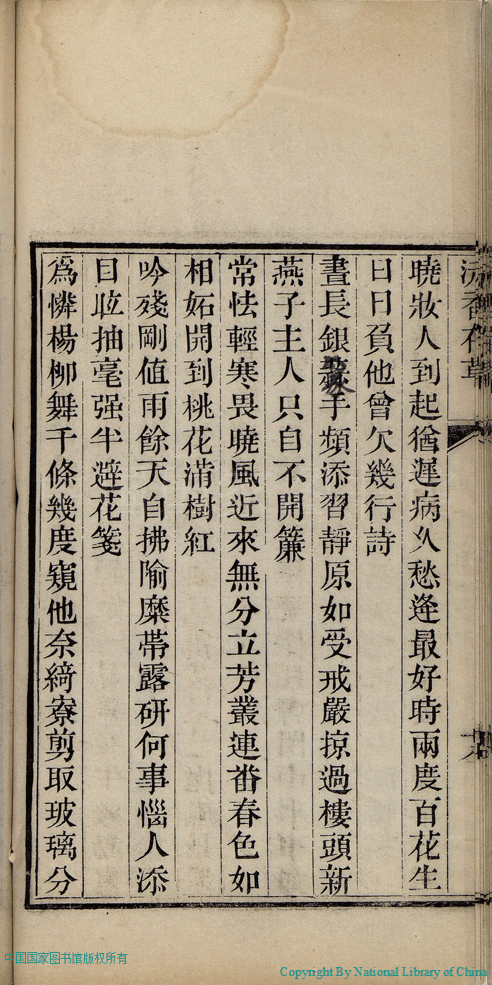 曉妝人到起猶遲病久愁逢最好時兩度百花生
日日負他曾欠幾行詩
晝長銀篆手頻添習靜原如受戒嚴掠過樓頭新
燕子主人只自不開簾
常怯輕寒畏曉風近來無分立芳叢連畨春色如
相妬開到桃花滿樹紅
吟殘剛值雨餘天自拂隃糜帶露研何事惱人添
目眩抽毫强半避花箋
爲憐楊柳舞千條幾度窺他奈綺寮剪取玻璃分
中国国家图书馆版权所有
Copyright By National Library of China